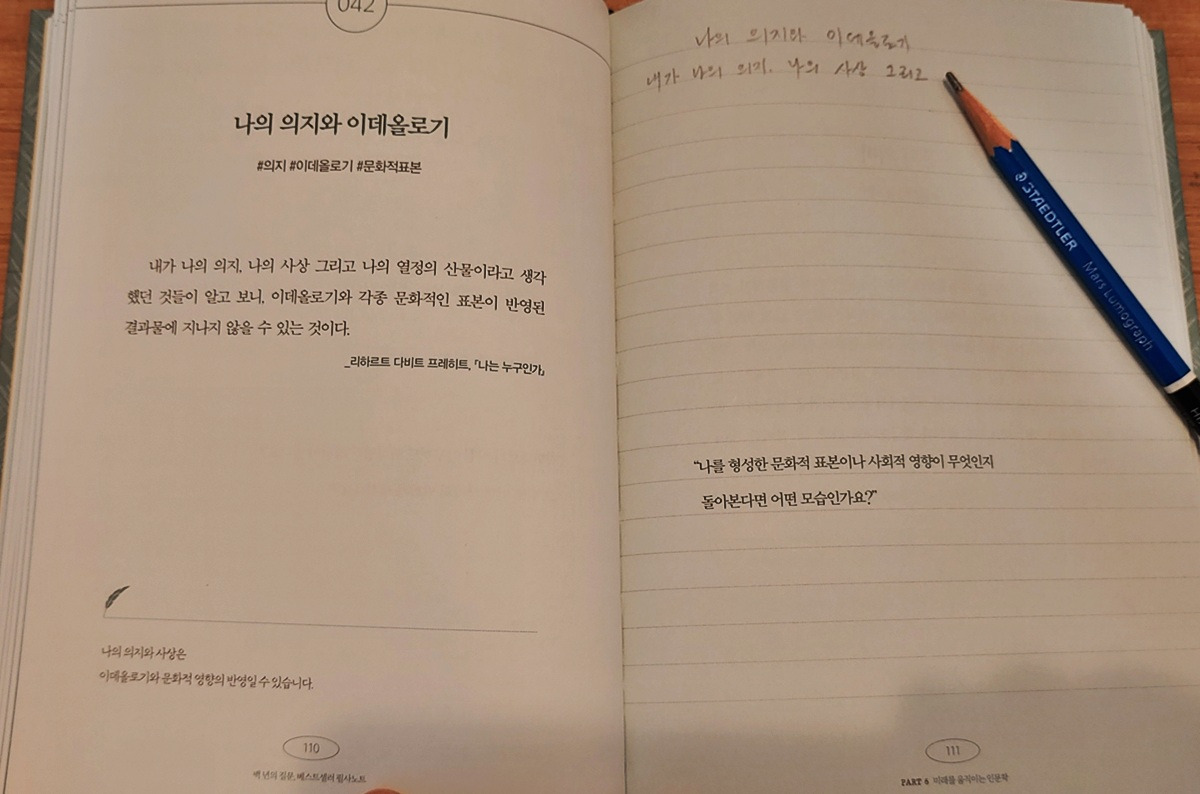 042
나의 의지와 이데올로기
#의지 #이데올로기 #문화적표본
내가 나의 의지, 나의 사상 그리고 나의 열정의 산물이라고 생각
했던 것들이 알고 보니, 이데올로기와 각종 문화적인 표본이 반영된
결과물에 지나지 않을 수 있는 것이다.
_리하르트 다비트 프레히트, 「나는 누구인가」
나의 의지와 사상은
이데올로기와 문화적 영향의 반영일 수 있습니다.
110
백 년의 질문, 베스트셀러 필사노트
나의 의지와 이데올로기
내가 나의 의지, 나의 사상 그리고
STAEDTLER
Mars Lumograph
"나를 형성한 문화적 표본이나 사회적 영향이 무엇인지
돌아본다면 어떤 모습인가요?"
111
PART 6 미래를 움직이는 인문학